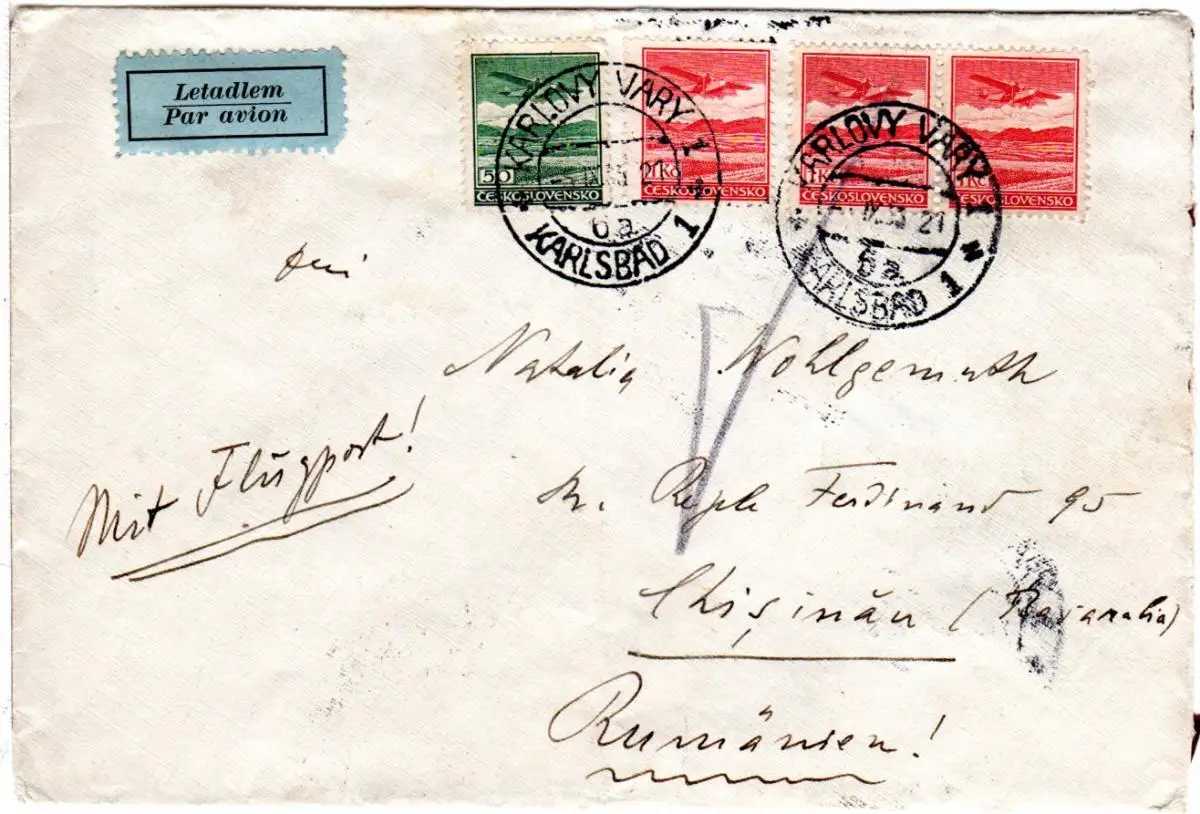 Letadlem
Par avion
50
ČESKOSLOVENSKO
1Kč
ČESKOSLOVENSKO
1Kč
ČESKOSLOVENSKO
Kč
ČESKOSLOVENSKO
KARLOVY VARY 1
21
6a
KARLSBAD 1
KARLOVY VARY 1
21
6a
KARLSBAD 1
Natalia Wohlgemuth
Mit Flugpost!
Ferdinand 95
Chişinău
Rumänien!